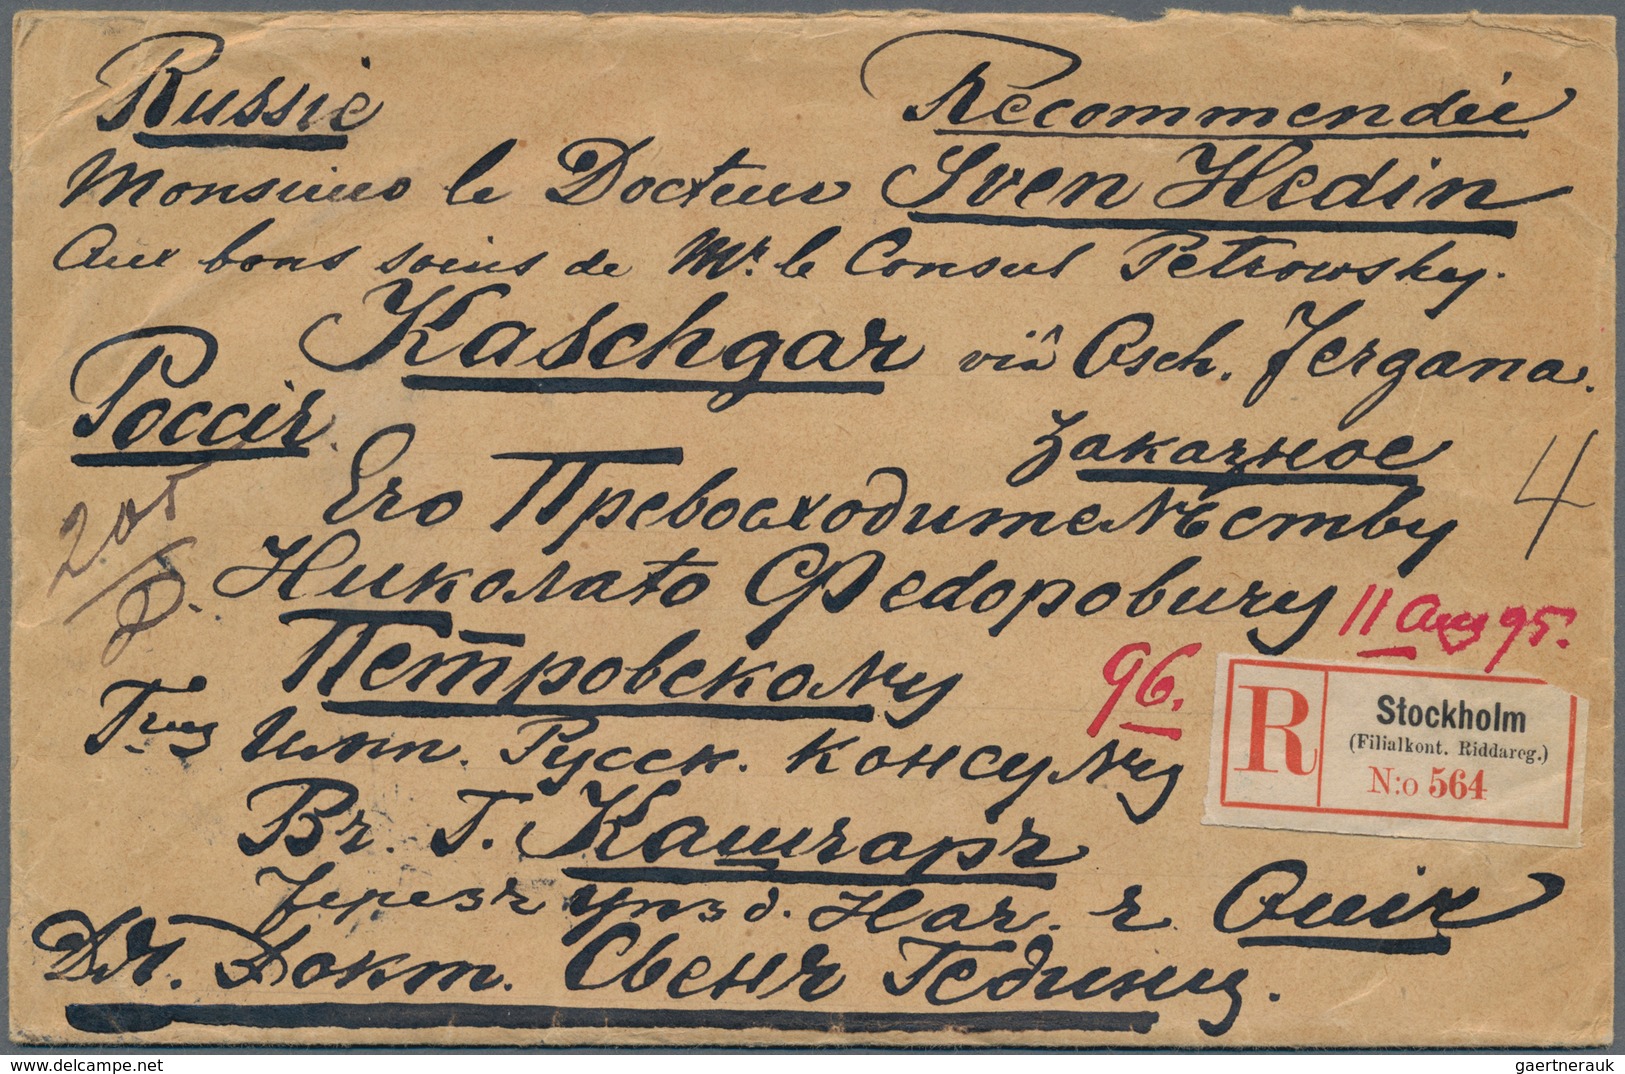 Russie Recommendée
Monsieur le Docteur Sven Hedin
Aux bons soins de Mr. le Consul Petrowsky.
Kaschgar via Osch. Fergana.
Россія
Заказное
Его Превосходительству
4
205
Николаю Федоровичу
11 Aug 95.
Петровскому
96.
R
Stockholm
(Filialkont. Riddareg.)
N:o 564
Гну Имп. Русск. Консулу
Въ. Г. Кашгаръ
Черезъ Уѣзд. Нач. г. Ошъ
Дл. Докт. Свенъ Гедину.
www.delcampe.net
gaertnerauk